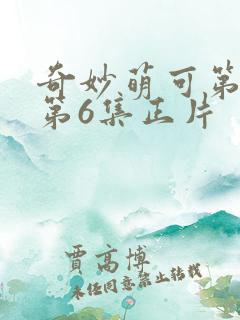 奇妙萌可第
第6集正片
賈高博
未任同意禁止转载